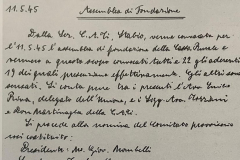 11.5.45 Assemblea di Fondazione
Dalla Soc. C.A.Ti. Stabio, venne convocata per
l'11.5.45 l'assemblea di fondazione della Cassa Rurale e
vennero a questo scopo convocati tutti i 22 gli aderenti
19 dei quali presenziano effettivamente. Gli altri sono
scusati. Si conta pure tra i presenti l'Avv. Guido
delegato dell'Unione, e i Sigg.
della C.A.Ti.
Si procede alla nomina del Comitato provvisorio
così costituito:
Presidente: M. Giov. Mombelli